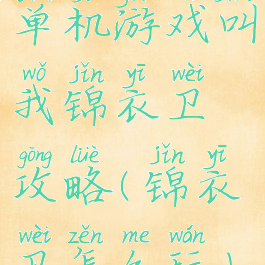 单机游戏叫
wǒ jǐn yī wèi
我锦衣卫
gōng lüè jǐn yī
攻略(锦衣
wèi zěn me wán
卫怎么玩)